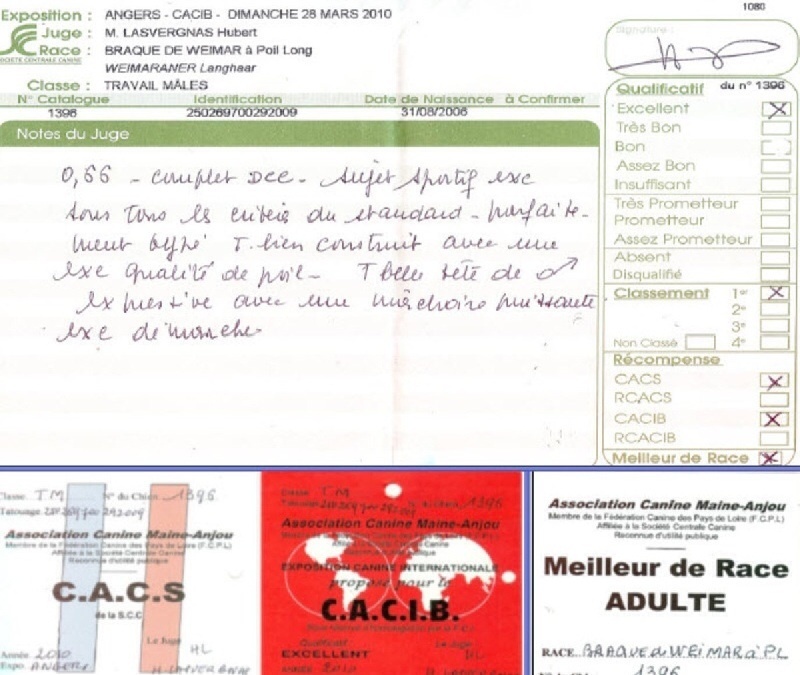 1080
Exposition : ANGERS - CACIB - DIMANCHE 28 MARS 2010
Juge : M. LASVERGNAS Hubert
Race : BRAQUE DE WEIMAR à Poil Long
SOCIETE CENTRALE CANINE
WEIMARANER Langhaar
Classe : TRAVAIL MÂLES
N° Catalogue Identification Date de Naissance à Confirmer
1396 250269700292009 31/08/2006
Notes du Juge
0,66 - complet Dce - Sujet sportif exc
sous tous les critère du standard - parfaite-
ment typé T. bien construit avec une
exc qualité de poil - T belle tête de ♂
expressive avec une mâchoire puissante
exc démarche.
Signature :
Qualificatif du n° 1396
Excellent
Très Bon
Bon
Assez Bon
Insuffisant
Très Prometteur
Prometteur
Assez Prometteur
Absent
Disqualifié
Classement 1er
2e
3e
Non Classé 4e
Récompense
CACS
RCACS
CACIB
RCACIB
Meilleur de Race
Classe TM N° du Chien 1396
Tatouage 250 269 700 292 009
Association Canine Maine-Anjou
Membre de la Fédération Canine des Pays de Loire (F.C.P.L)
Affiliée à la Société Centrale Canine
Reconnue d'utilité publique
C.A.C.S
de la S.C.C
Le Juge
HL
Année 2010
Expo. ANGERS H LASVERGNAS
Classe TM
Tatouage 1396
Association Canine Maine-Anjou
EXPOSITION CANINE INTERNATIONALE
proposé pour le
C.A.C.I.B.
Qualificatif Le Juge
EXCELLENT HL
ANNÉE 2010
Association Canine Maine-Anjou
Membre de la Fédération Canine des Pays de Loire (F.C.P.L)
Affiliée à la Société Centrale Canine
Reconnue d'utilité publique
Meilleur de Race
ADULTE
RACE BRAQUE de WEIMAR à PL
1396